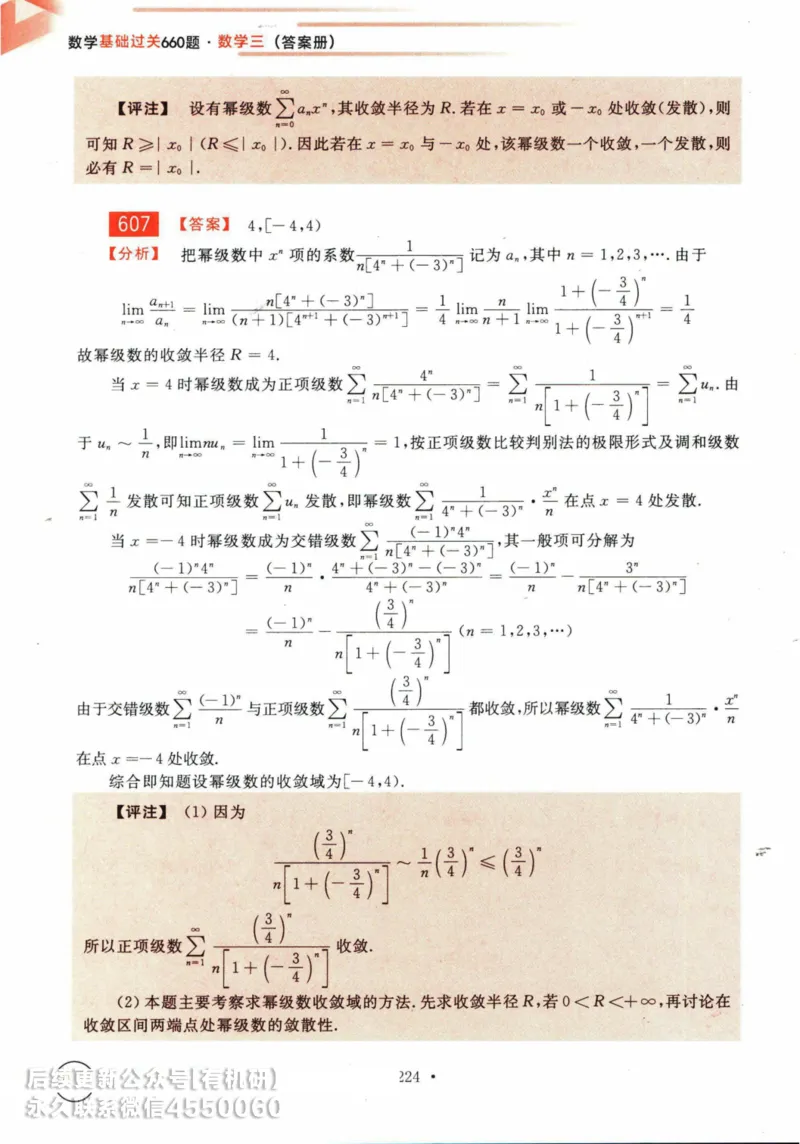 数学基础过关660题·数学三（答案册）
【评注】 设有幂级数 $\sum_{n=0}^{\infty} a_n x^n$,其收敛半径为 R.若在 $x = x_0$ 或 $-x_0$ 处收敛(发散),则
可知 $R \geqslant |x_0|$ ($R \leqslant |x_0|$).因此若在 $x = x_0$ 与 $-x_0$ 处,该幂级数一个收敛,一个发散,则
必有 $R = |x_0|$.
607 【答案】 4,[-4,4)
【分析】 把幂级数中 $x^n$ 项的系数 $\frac{1}{n[4^n+(-3)^n]}$ 记为 $a_n$,其中 $n = 1,2,3,\cdots$.由于
$\lim_{n\to\infty} \frac{a_{n+1}}{a_n} = \lim_{n\to\infty} \frac{n[4^n+(-3)^n]}{(n+1)[4^{n+1}+(-3)^{n+1}]} = \frac{1}{4} \lim_{n\to\infty} \frac{n}{n+1} \lim_{n\to\infty} \frac{1+\left(-\frac{3}{4}\right)^n}{1+\left(-\frac{3}{4}\right)^{n+1}} = \frac{1}{4}$
故幂级数的收敛半径 R = 4.
当 $x = 4$ 时幂级数成为正项级数 $\sum_{n=1}^{\infty} \frac{4^n}{n[4^n+(-3)^n]} = \sum_{n=1}^{\infty} \frac{1}{n\left[1+\left(-\frac{3}{4}\right)^n\right]} = \sum_{n=1}^{\infty} u_n$.由
于 $u_n \sim \frac{1}{n}$,即 $\lim_{n\to\infty} nu_n = \lim_{n\to\infty} \frac{1}{1+\left(-\frac{3}{4}\right)^n} = 1$,按正项级数比较判别法的极限形式及调和级数
$\sum_{n=1}^{\infty} \frac{1}{n}$ 发散可知正项级数 $\sum_{n=1}^{\infty} u_n$ 发散,即幂级数 $\sum_{n=1}^{\infty} \frac{1}{4^n+(-3)^n} \cdot \frac{x^n}{n}$ 在点 $x = 4$ 处发散.
当 $x = -4$ 时幂级数成为交错级数 $\sum_{n=1}^{\infty} \frac{(-1)^n 4^n}{n[4^n+(-3)^n]}$,其一般项可分解为
$\frac{(-1)^n 4^n}{n[4^n+(-3)^n]} = \frac{(-1)^n}{n} \cdot \frac{4^n+(-3)^n-(-3)^n}{4^n+(-3)^n} = \frac{(-1)^n}{n} - \frac{3^n}{n[4^n+(-3)^n]}$
$= \frac{(-1)^n}{n} - \frac{\left(\frac{3}{4}\right)^n}{n\left[1+\left(-\frac{3}{4}\right)^n\right]} (n = 1,2,3,\cdots)$
由于交错级数 $\sum_{n=1}^{\infty} \frac{(-1)^n}{n}$ 与正项级数 $\sum_{n=1}^{\infty} \frac{\left(\frac{3}{4}\right)^n}{n\left[1+\left(-\frac{3}{4}\right)^n\right]}$ 都收敛,所以幂级数 $\sum_{n=1}^{\infty} \frac{1}{4^n+(-3)^n} \cdot \frac{x^n}{n}$
在点 $x = -4$ 处收敛.
综合即知题设幂级数的收敛域为[-4,4).
【评注】 (1) 因为
$\frac{\left(\frac{3}{4}\right)^n}{n\left[1+\left(-\frac{3}{4}\right)^n\right]} \sim \frac{1}{n}\left(\frac{3}{4}\right)^n \leqslant \left(\frac{3}{4}\right)^n$
所以正项级数 $\sum_{n=1}^{\infty} \frac{\left(\frac{3}{4}\right)^n}{n\left[1+\left(-\frac{3}{4}\right)^n\right]}$ 收敛.
(2) 本题主要考察求幂级数收敛域的方法.先求收敛半径 R,若 $0 < R < +\infty$,再讨论在
收敛区间两端点处幂级数的敛散性.
224 ·
后续更新公众号[有机研]
永久联系微信4550060